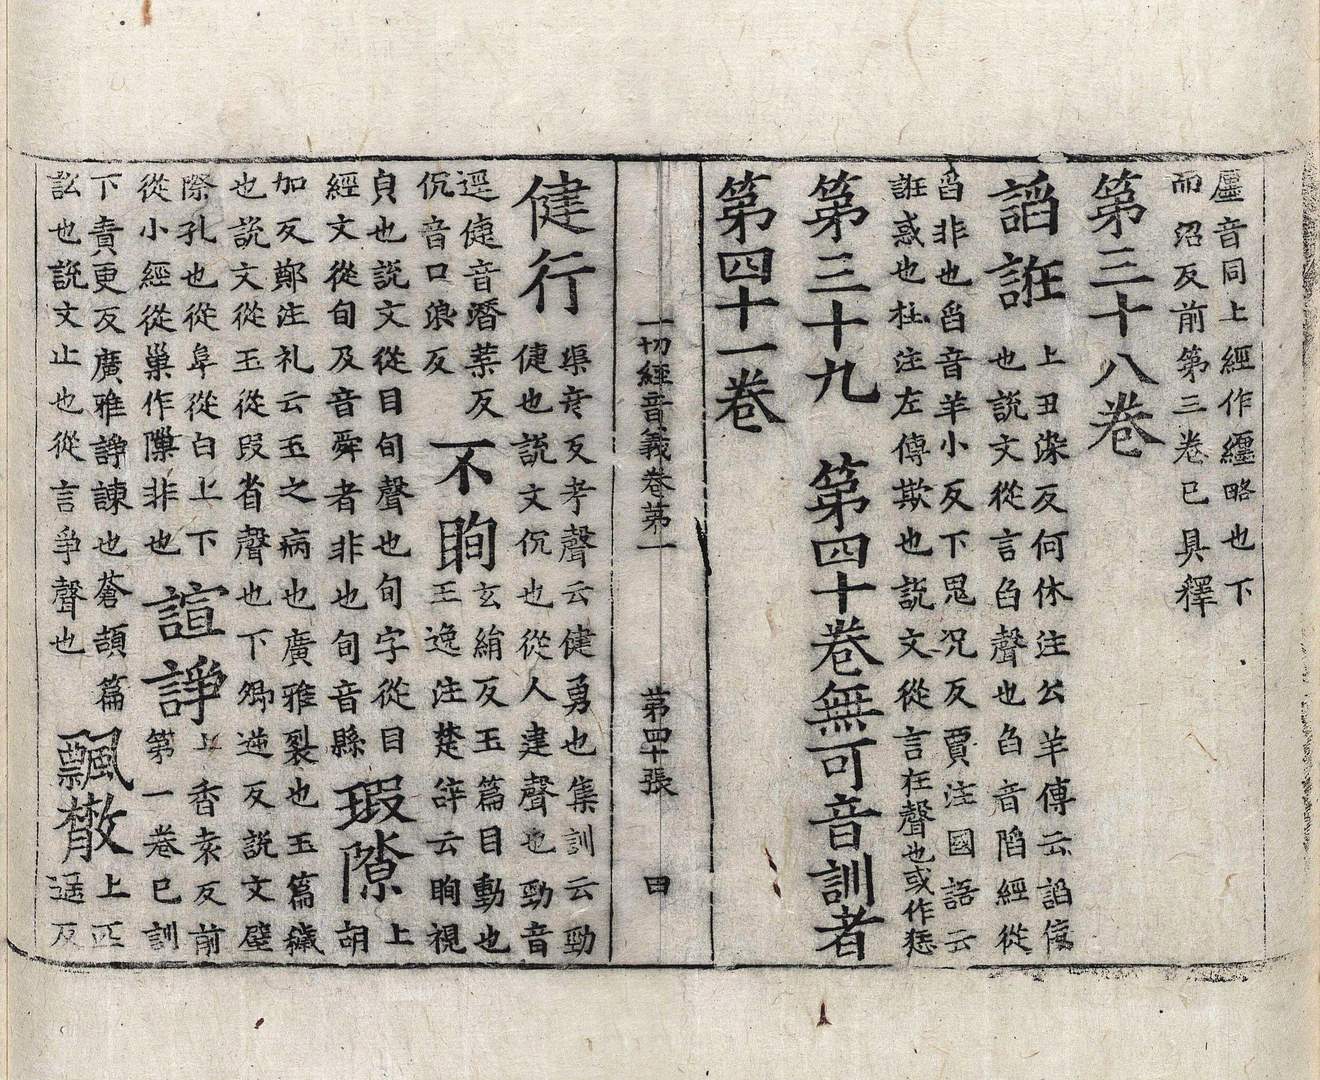 廛音同上經作纏略也下
而沼反前第三卷已具釋
第三十八卷
謟誑
上丑染反何休注公羊傳云謟侫
也說文從言臽聲也臽音陷經從
舀非也舀音羊小反下俱況反賈注國語云
誑惑也杜注左傳欺也說文從言狂聲也或作𢠰
第三十九 第四十卷無可音訓者
第四十一卷
一切經音義卷第一 第四十張 田
健行
渠彦反考聲云健勇也集訓云勁
健也說文伉也從人建聲也勁音
逕健音𣊟葉反
伉音口浪反
不眴
玄絹反玉篇目動也
王逸注楚辝云眴視
皃也說文從目旬聲也旬字從目
經文從旬及音舜者非也旬音縣
瑕隙
上
胡
加反鄭注礼云玉之病也廣雅裂也玉篇穢
也說文從玉從叚省聲也下卿逆反說文壁
際孔也從阜從白上下
從小經從巢作隟非也
諠諍
上香袁反前
第一卷已訓
下責更反廣雅諍諫也蒼頡篇
訟也說文止也從言爭聲也
飄散
上匹
遥反